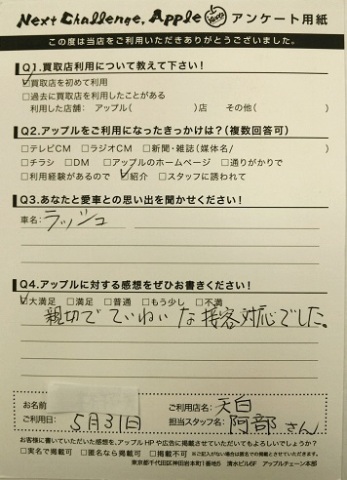 Next Challenge, Apple アンケート用紙
この度は当店をご利用いただきありがとうございました。
Q1.買取店利用について教えて下さい!
☑買取店を初めて利用
□過去に買取店を利用したことがある
利用した店舗: アップル( )店 その他( )
Q2.アップルをご利用になったきっかけは?(複数回答可)
□テレビCM □ラジオCM □新聞・雑誌(媒体名/ )
□チラシ □DM □アップルのホームページ □通りがかりで
□利用経験があるので ☑紹介 □スタッフに誘われて
Q3.あなたと愛車との思い出を聞かせてください!
車名: ラッシュ
Q4.アップルに対する感想をぜひお書きください!
☑大満足 □満足 □普通 □もう少し □不満
親切でていねいな接客対応でした。
お名前
ご利用店名: 天白
ご利用日: 5月31日
担当スタッフ名: 阿部さん
お客様に書いていただいた感想を、アップルHPや広告に掲載させていただいてもよろしいでしょうか?
□実名で掲載可 □匿名なら掲載可 □掲載不可 ※ご記入がない場合は匿名での掲載とさせていただきます。
東京都千代田区神田岩本町1番地5 清水ビル6F アップルチェーン本部